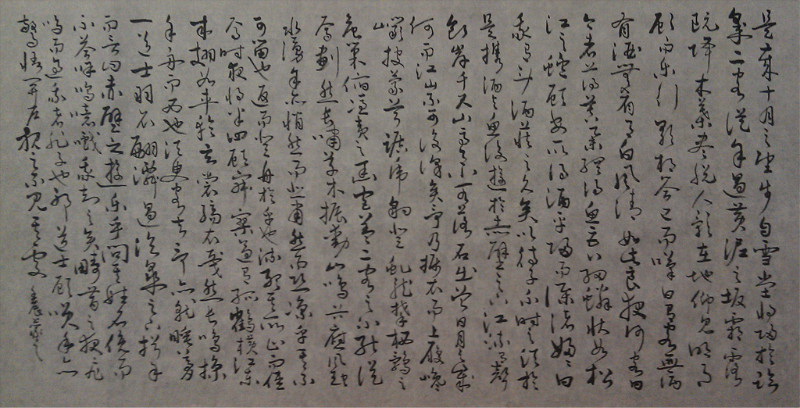 是歲十月之望步自雪堂將歸於臨
皋二客從予過黃泥之坂霜露
既降木葉盡脫人影在地仰見明月
顧而樂行歌相答已而嘆曰有客無酒
有酒無肴月白風清如此良夜何客曰
今者薄暮舉網得魚巨口細鱗狀如松
江之鱸顧安所得酒乎歸而謀諸婦婦曰
我有斗酒藏之久矣以待子不時之須於
是攜酒與魚復遊於赤壁之下江流有聲
斷岸千尺山高月小水落石出曾日月之幾
何而江山不可復識矣予乃攝衣而上履巉
巖披蒙茸踞虎豹登虬龍攀栖鶻之
危巢俯馮夷之幽宮蓋二客之不能從
焉劃然長嘯草木振動山鳴谷應風起
水湧予亦悄然而悲肅然而恐凜乎其不
可留也返而登舟放乎中流聽其所止而休
焉時夜將半四顧寂寥適有孤鶴橫江東
來翅如車輪玄裳縞衣戛然長鳴掠
予舟而西也須臾客去予亦就睡夢
一道士羽衣翩躚過臨皋之下揖予
而言曰赤壁之遊樂乎問其姓名俛而
不答嗚呼噫嘻我知之矣疇昔之夜飛
鳴而過我者非子也耶道士顧笑予亦
驚悟開戶視之不見其處